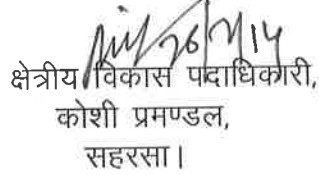 26/7/14
क्षेत्रीय विकास पदाधिकारी,
कोशी प्रमण्डल,
सहरसा।